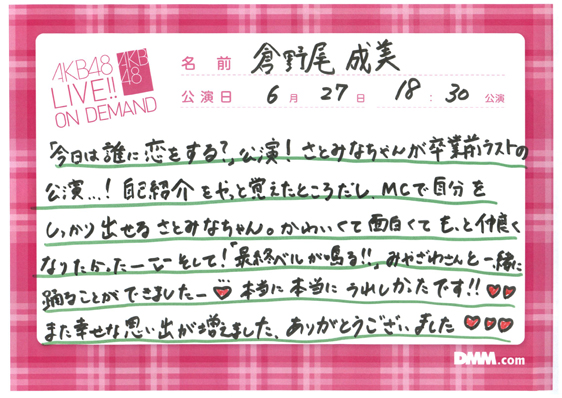 AKB48
LIVE!!
ON DEMAND
AKB
48
名前 倉野尾 成美
公演日 6月 27日 18:30 公演
「今日は誰に恋をする?」公演!さとみなちゃんが卒業前ラストの
公演...!自己紹介をやっと覚えたところだし、MCで自分を
しっかり出せるさとみなちゃん。かわいくて面白くてもっと仲良く
なりたかったーそして!「最終ベルが鳴る!!」みやざわさんと一緒に
踊ることができましたー♥本当に本当にうれしかったです!!♥♥
また幸せな思い出が増えました、ありがとうございました♥♥♥
DMM.com